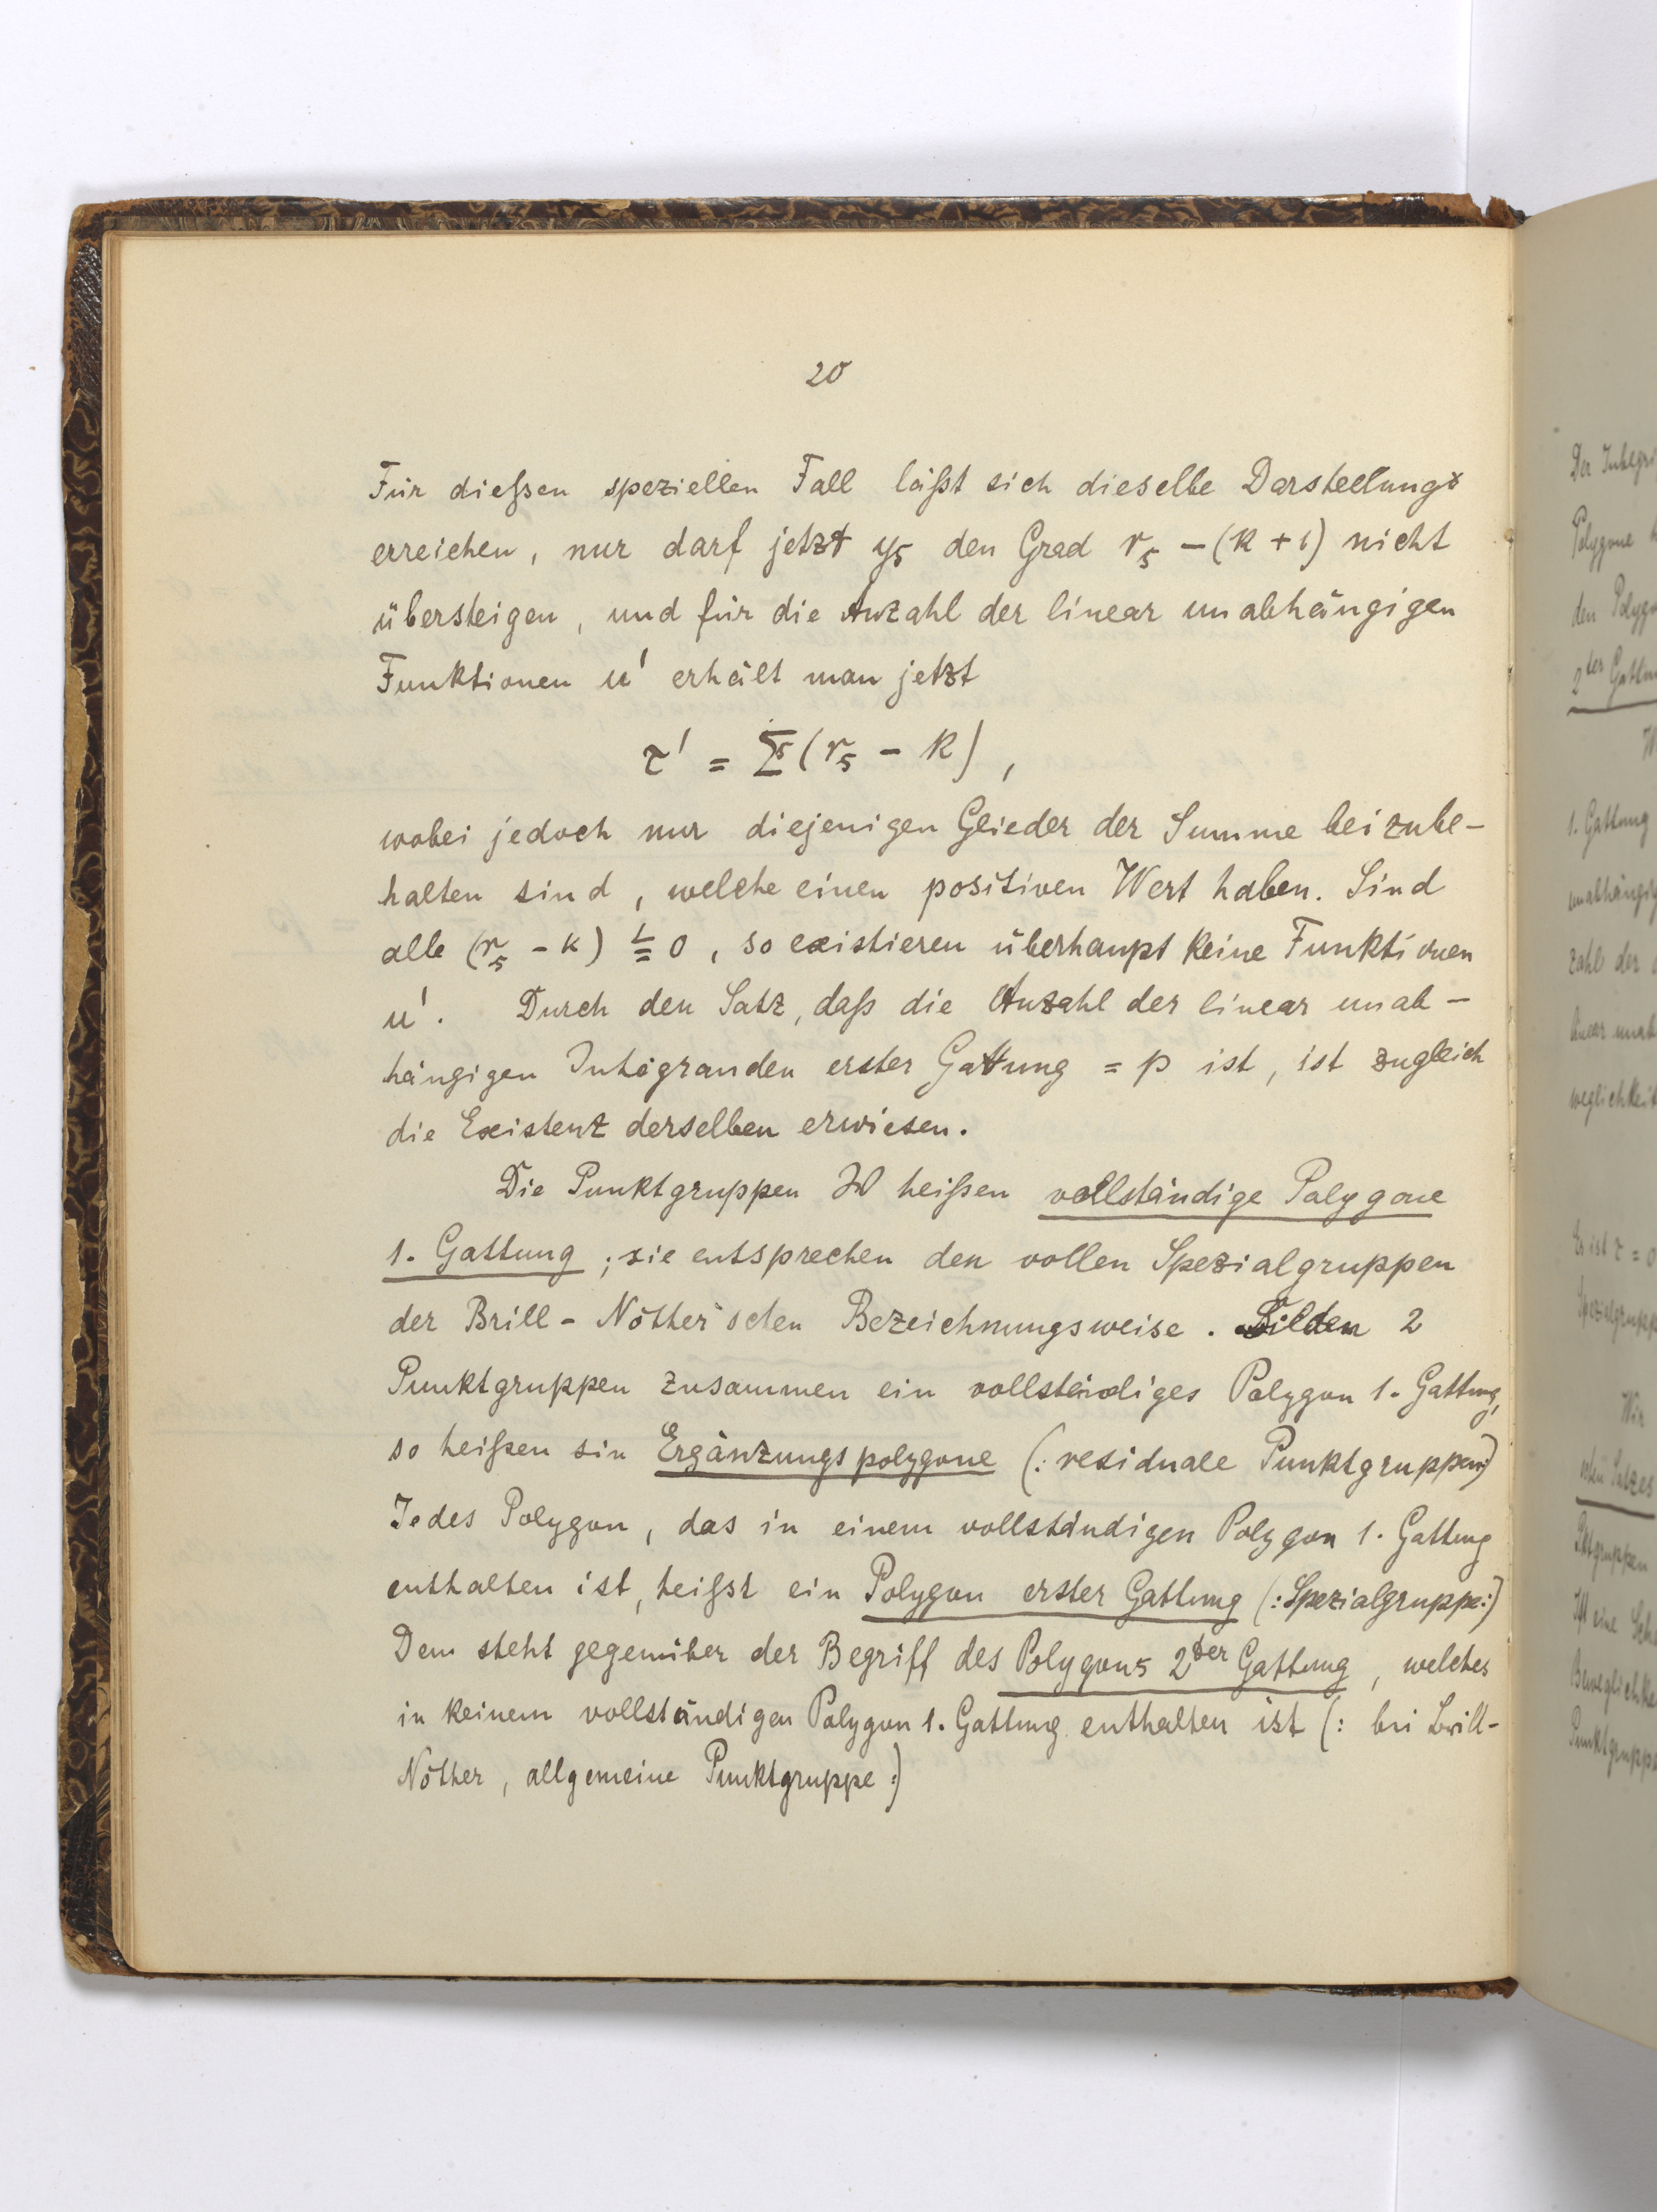 20
Für dießen speziellen Fall läßt sich dieselbe Darstellung
erreichen, nur darf jetzt y₅ den Grad r₅ – (k + 1) nicht
übersteigen, und für die Anzahl der linear unabhängigen
Funktionen u' erhält man jetzt
τ' = Σ (r₅ – k),
wobei jedoch nur diejenigen Glieder der Summe beizube-
halten sind, welche einen positiven Wert haben. Sind
alle (r₅ – k) ≦ 0, so existieren überhaupt keine Funktionen
u'. Durch den Satz, daß die Anzahl der linear unab-
hängigen Integranden erster Gattung = p ist, ist zugleich
die Existenz derselben erwiesen.
Die Punktgruppen W heißen vollständige Polygone
1. Gattung; sie entsprechen den vollen Spezialgruppen
der Brill - Nöther'schen Bezeichnungsweise. Bilden 2
Punktgruppen zusammen ein vollständiges Polygon 1. Gattung,
so heißen sie Ergänzungspolygone (: residuale Punktgruppen:)
Jedes Polygon, das in einem vollständigen Polygon 1. Gattung
enthalten ist, heißst ein Polygon erster Gattung (: Spezialgruppe:)
Dem steht gegenüber der Begriff des Polygons 2ter Gattung, welches
in keinem vollständigen Polygon 1. Gattung enthalten ist (: bei Brill-
Nöther, allgemeine Punktgruppe:)
Polygone
1. Gattung
zahl der
Es ist τ = 0
Wir